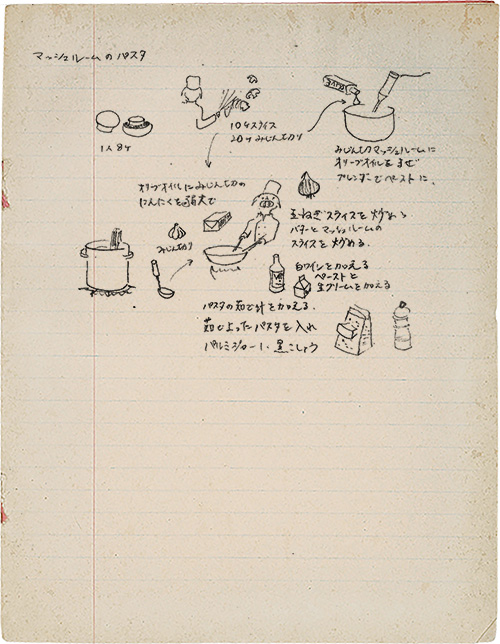 マッシュルームのパスタ
1人 8ケ
10ケスライス
20ケみじん切り
みじん切マッシュルームに
オリーブオイルをまぜ
ブレンダーでペーストに。
オリーブオイルにみじん切の
にんにくを弱火で
みじん切り
玉ねぎスライスを炒め
バターとマッシュルームの
スライスを炒める.
白ワインを加える
ペーストと
生クリームを加える
パスタの茹で汁を加える.
茹で上ったパスタを入れ
パルミジャーノ、黒こしょう